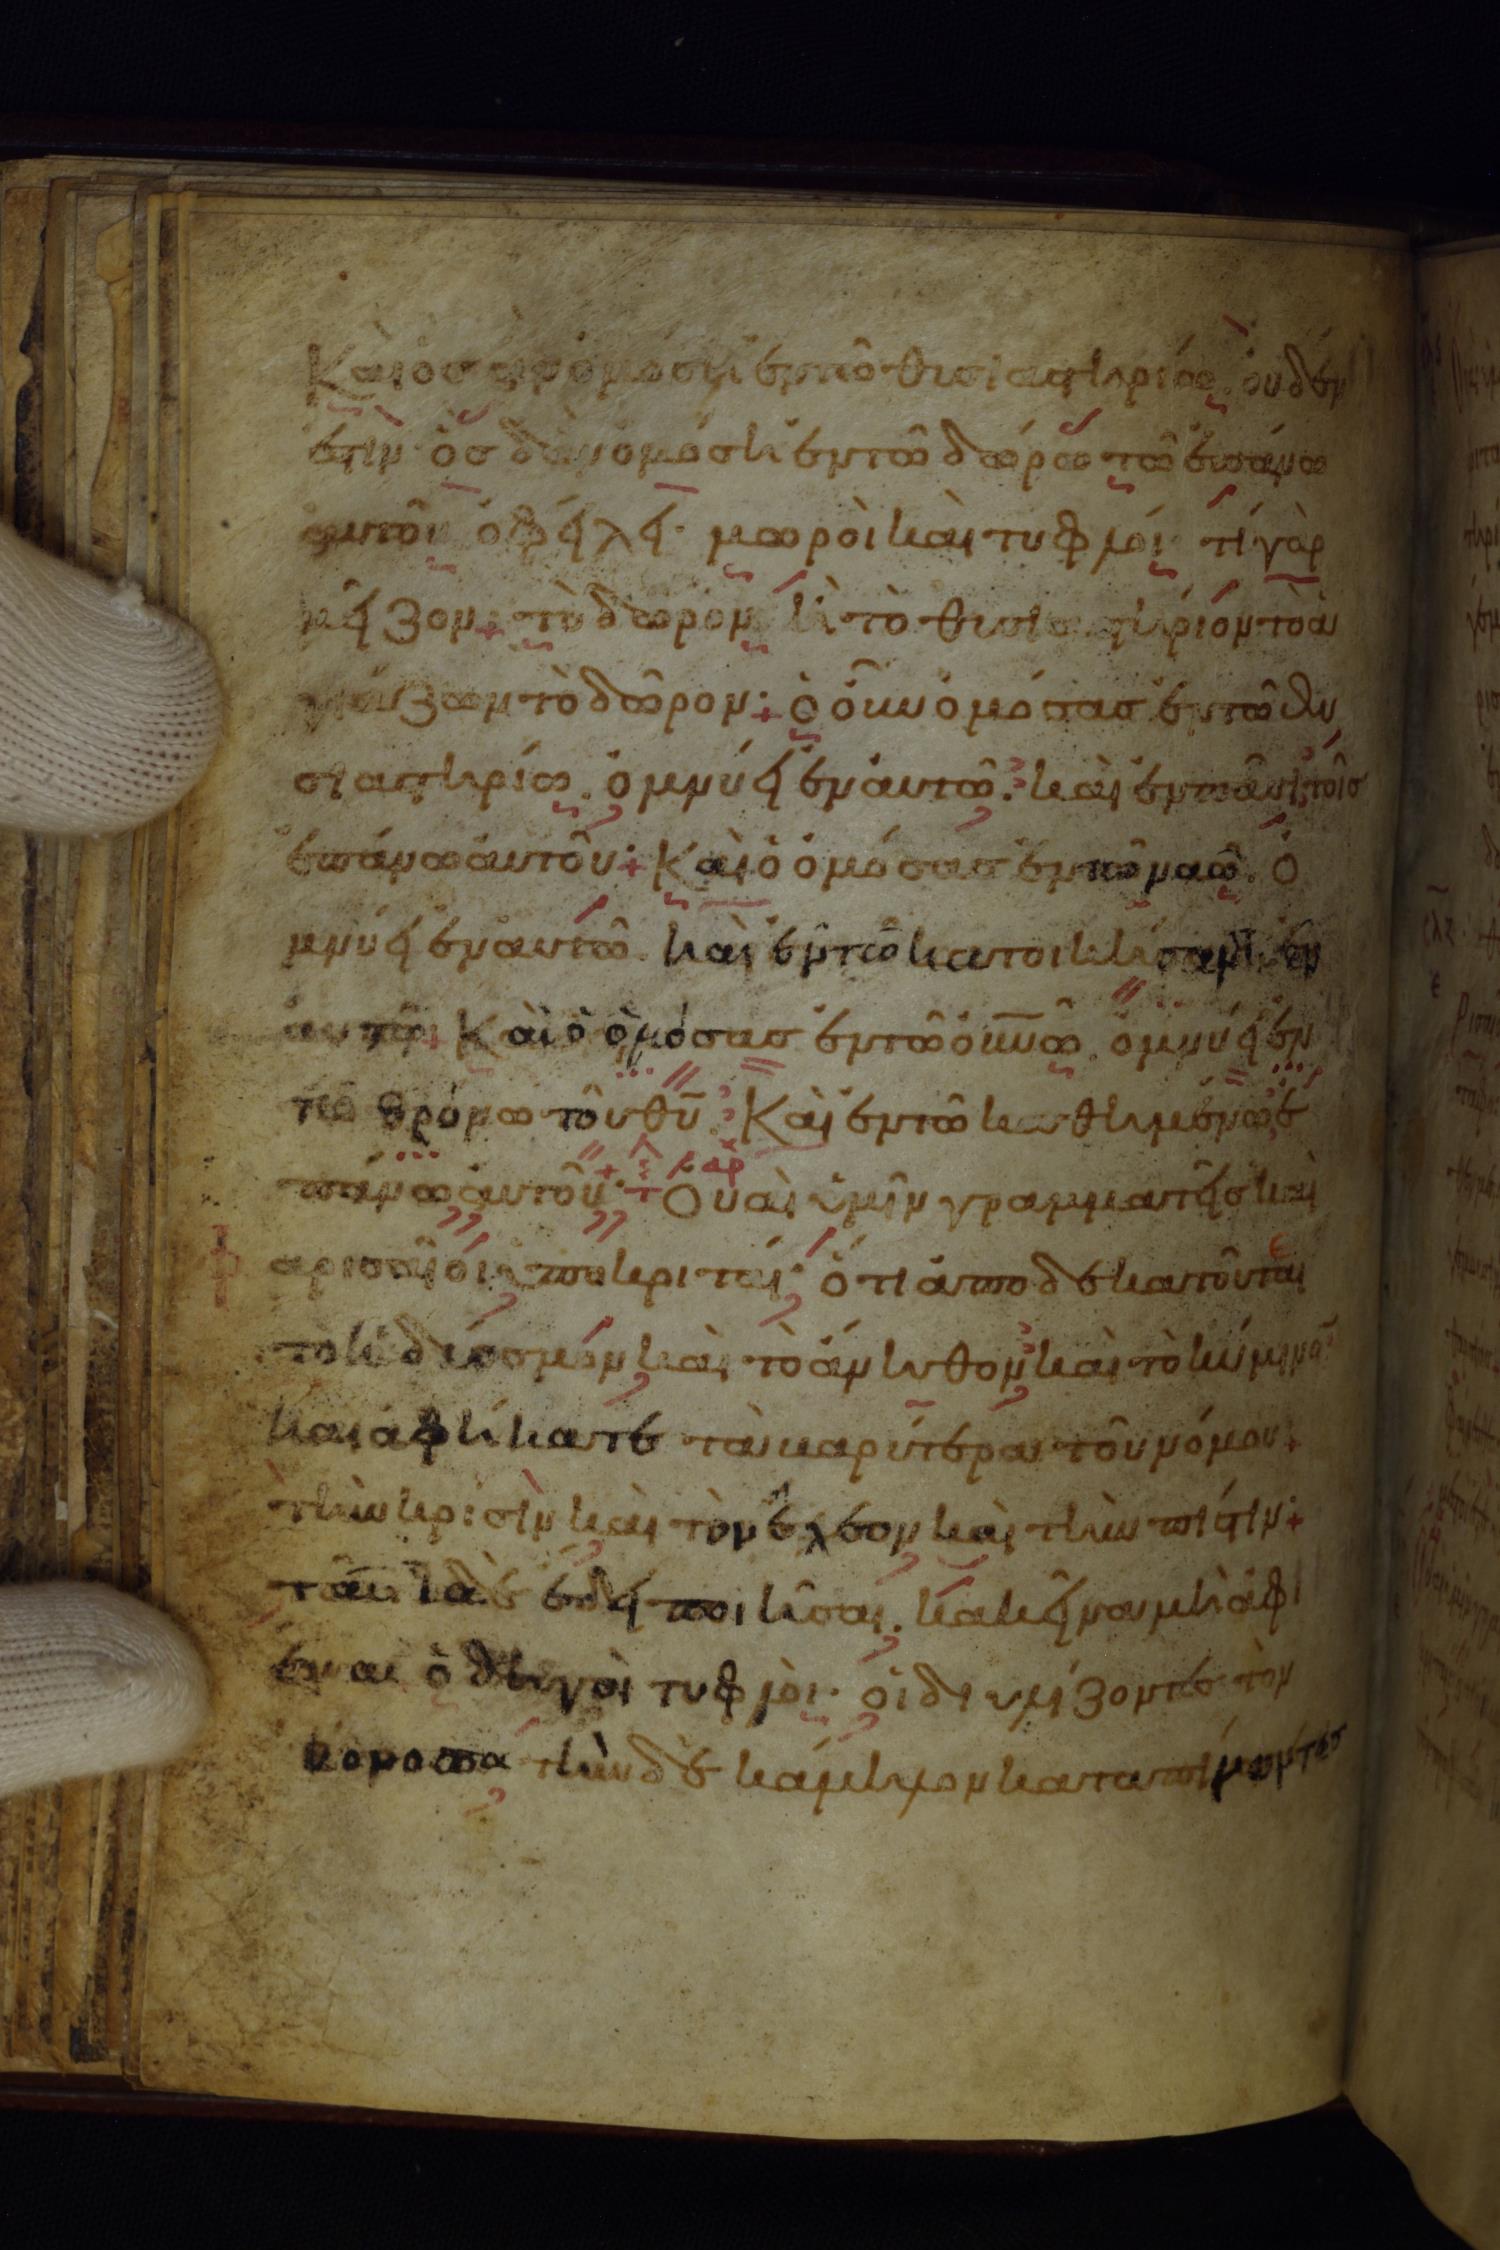 Καὶ ὃς ἐὰν ὀμόσηι ἐν τῶ θυσιαστηρίω. οὐδέν
ἐστιν· ὃς δ' ἂν ὀμόση ἐν τῶ δώρω τῶ ἐπάνω
αὐτοῦ ὀφείλει· μωροὶ καὶ τυφλοί· τί γὰρ
μεῖζον· τὸ δῶρον ἢ τὸ θυσιαστήριον τὸ ἁ
γιάζων τὸ δῶρον· ὁ οὖν ὀμόσας ἐν τῶ θυ
σιαστηρίω. ὀμνύει ἐν αὐτῶ. καὶ ἐν πᾶσι τοῖς
ἐπάνω αὐτοῦ· Καὶ ὁ ὀμόσας ἐν τῶ ναῶ. ὀ
μνύει ἐν αὐτῶ. καὶ ἐν τῶ κατοικήσαντι ἐν
αὐτῶ· Καὶ ὁ ὀμόσας ἐν τῶ οὐνῶ. ὀμνύει ἐν
τῶ θρόνω τοῦ θῦ. Καὶ ἐν τῶ καθημένω ἐ
πάνω αὐτοῦ· Οὐαὶ ὑμῖν γραμματεῖς καὶ
φαρισαῖοι ὑποκριταί· ὅτι ἀποδεκατοῦται
τὸ ἡδύοσμον καὶ τὸ ἄνηθον καὶ τὸ κύμινον
καὶ ἀφήκατε τὰ βαρύτερα τοῦ νόμου
τὴν κρίσιν καὶ τὸν ἔλεον καὶ τὴν πίστιν·
ταῦτα δὲ ἔδει ποιῆσαι. κακεῖνα μὴ ἀφι
έναι ὁδηγοὶ τυφλοί· οἱ διυλίζοντες τὸν
κόνοπα τὴν δὲ κάμηλον καταπίνοντες